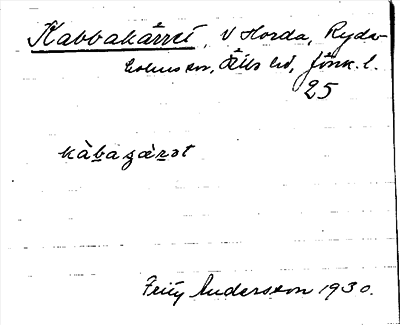 Kabbakärret, V Horda, Ryda-
holms sn, Östbo hd, Jönk. l.
25
kàbagæ̀rət
Fritz Andersson 1930.